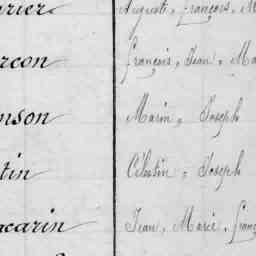 rier Auguste, françois, M
rcon françois, Jean, Ma
nson Marin, Joseph
tin Célestin, Joseph
acarin Jean, Marie, franç